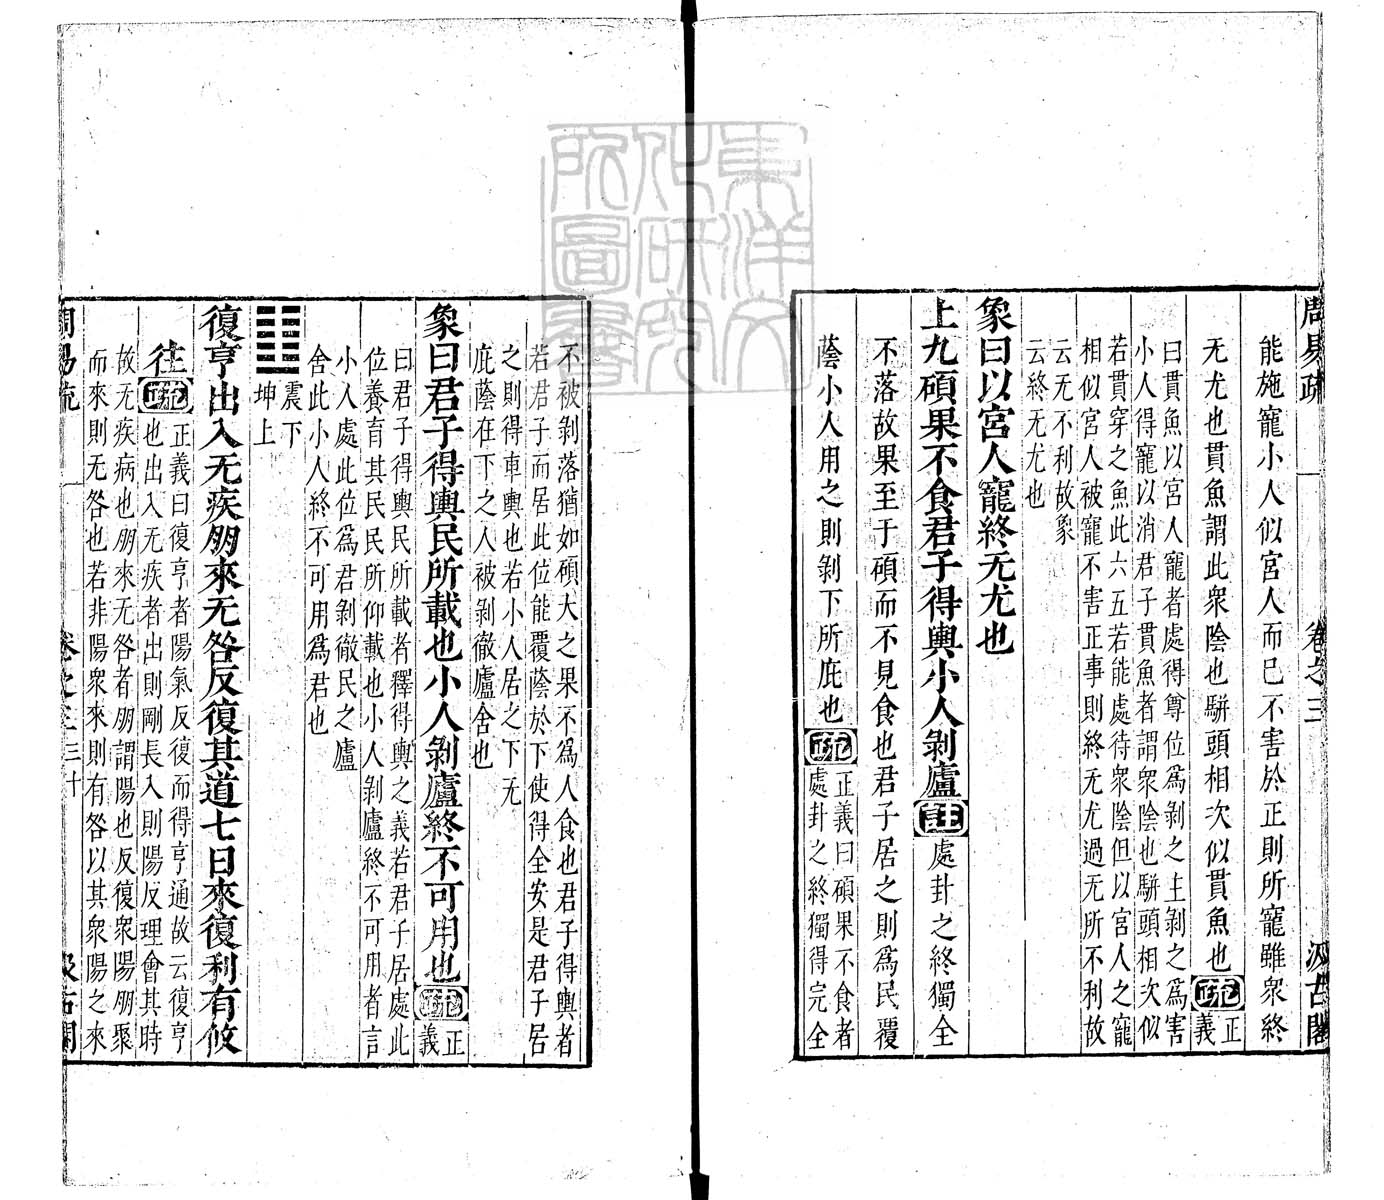 周易疏 卷之三 汲古閣
能施寵小人似宮人而已不害於正則所寵雖衆終
无尤也貫魚謂此衆陰也駢頭相次似貫魚也疏正
義
曰貫魚以宮人寵者處得尊位爲剝之主剝之爲害
小人得寵以消君子貫魚者謂衆陰也駢頭相次似
若貫穿之魚此六五若能處待衆陰但以宮人之寵
相似宮人被寵不害正事則終无尤過无所不利故
云无不利故象
云終无尤也
象曰以宮人寵終无尤也
上九碩果不食君子得輿小人剝廬註處卦之終獨全
不落故果至于碩而不見食也君子居之則爲民覆
蔭小人用之則剝下所庇也疏正義曰碩果不食者
處卦之終獨得完全
不被剝落猶如碩大之果不爲人食也君子得輿者
若君子而居此位能覆蔭於下使得全安是君子居
之則得車輿也若小人居之下无
庇蔭在下之人被剝徹廬舍也
象曰君子得輿民所載也小人剝廬終不可用也疏正
義
曰君子得輿民所載者釋得輿之義若君子居處此
位養育其民民所仰載也小人剝廬終不可用者言
小人處此位爲君剝徹民之廬
舍此小人終不可用爲君也
震下
坤上
復亨出入无疾朋來无咎反復其道七日來復利有攸
往疏正義曰復亨者陽氣反復而得亨通故云復亨
也出入无疾者出則剛長入則陽反理會其時
故无疾病也朋來无咎者朋謂陽也反復衆陽朋聚
而來則无咎也若非陽衆來則有咎以其衆陽之來
周易疏 卷之三 三十 汲古閣
東洋文化研究所圖書